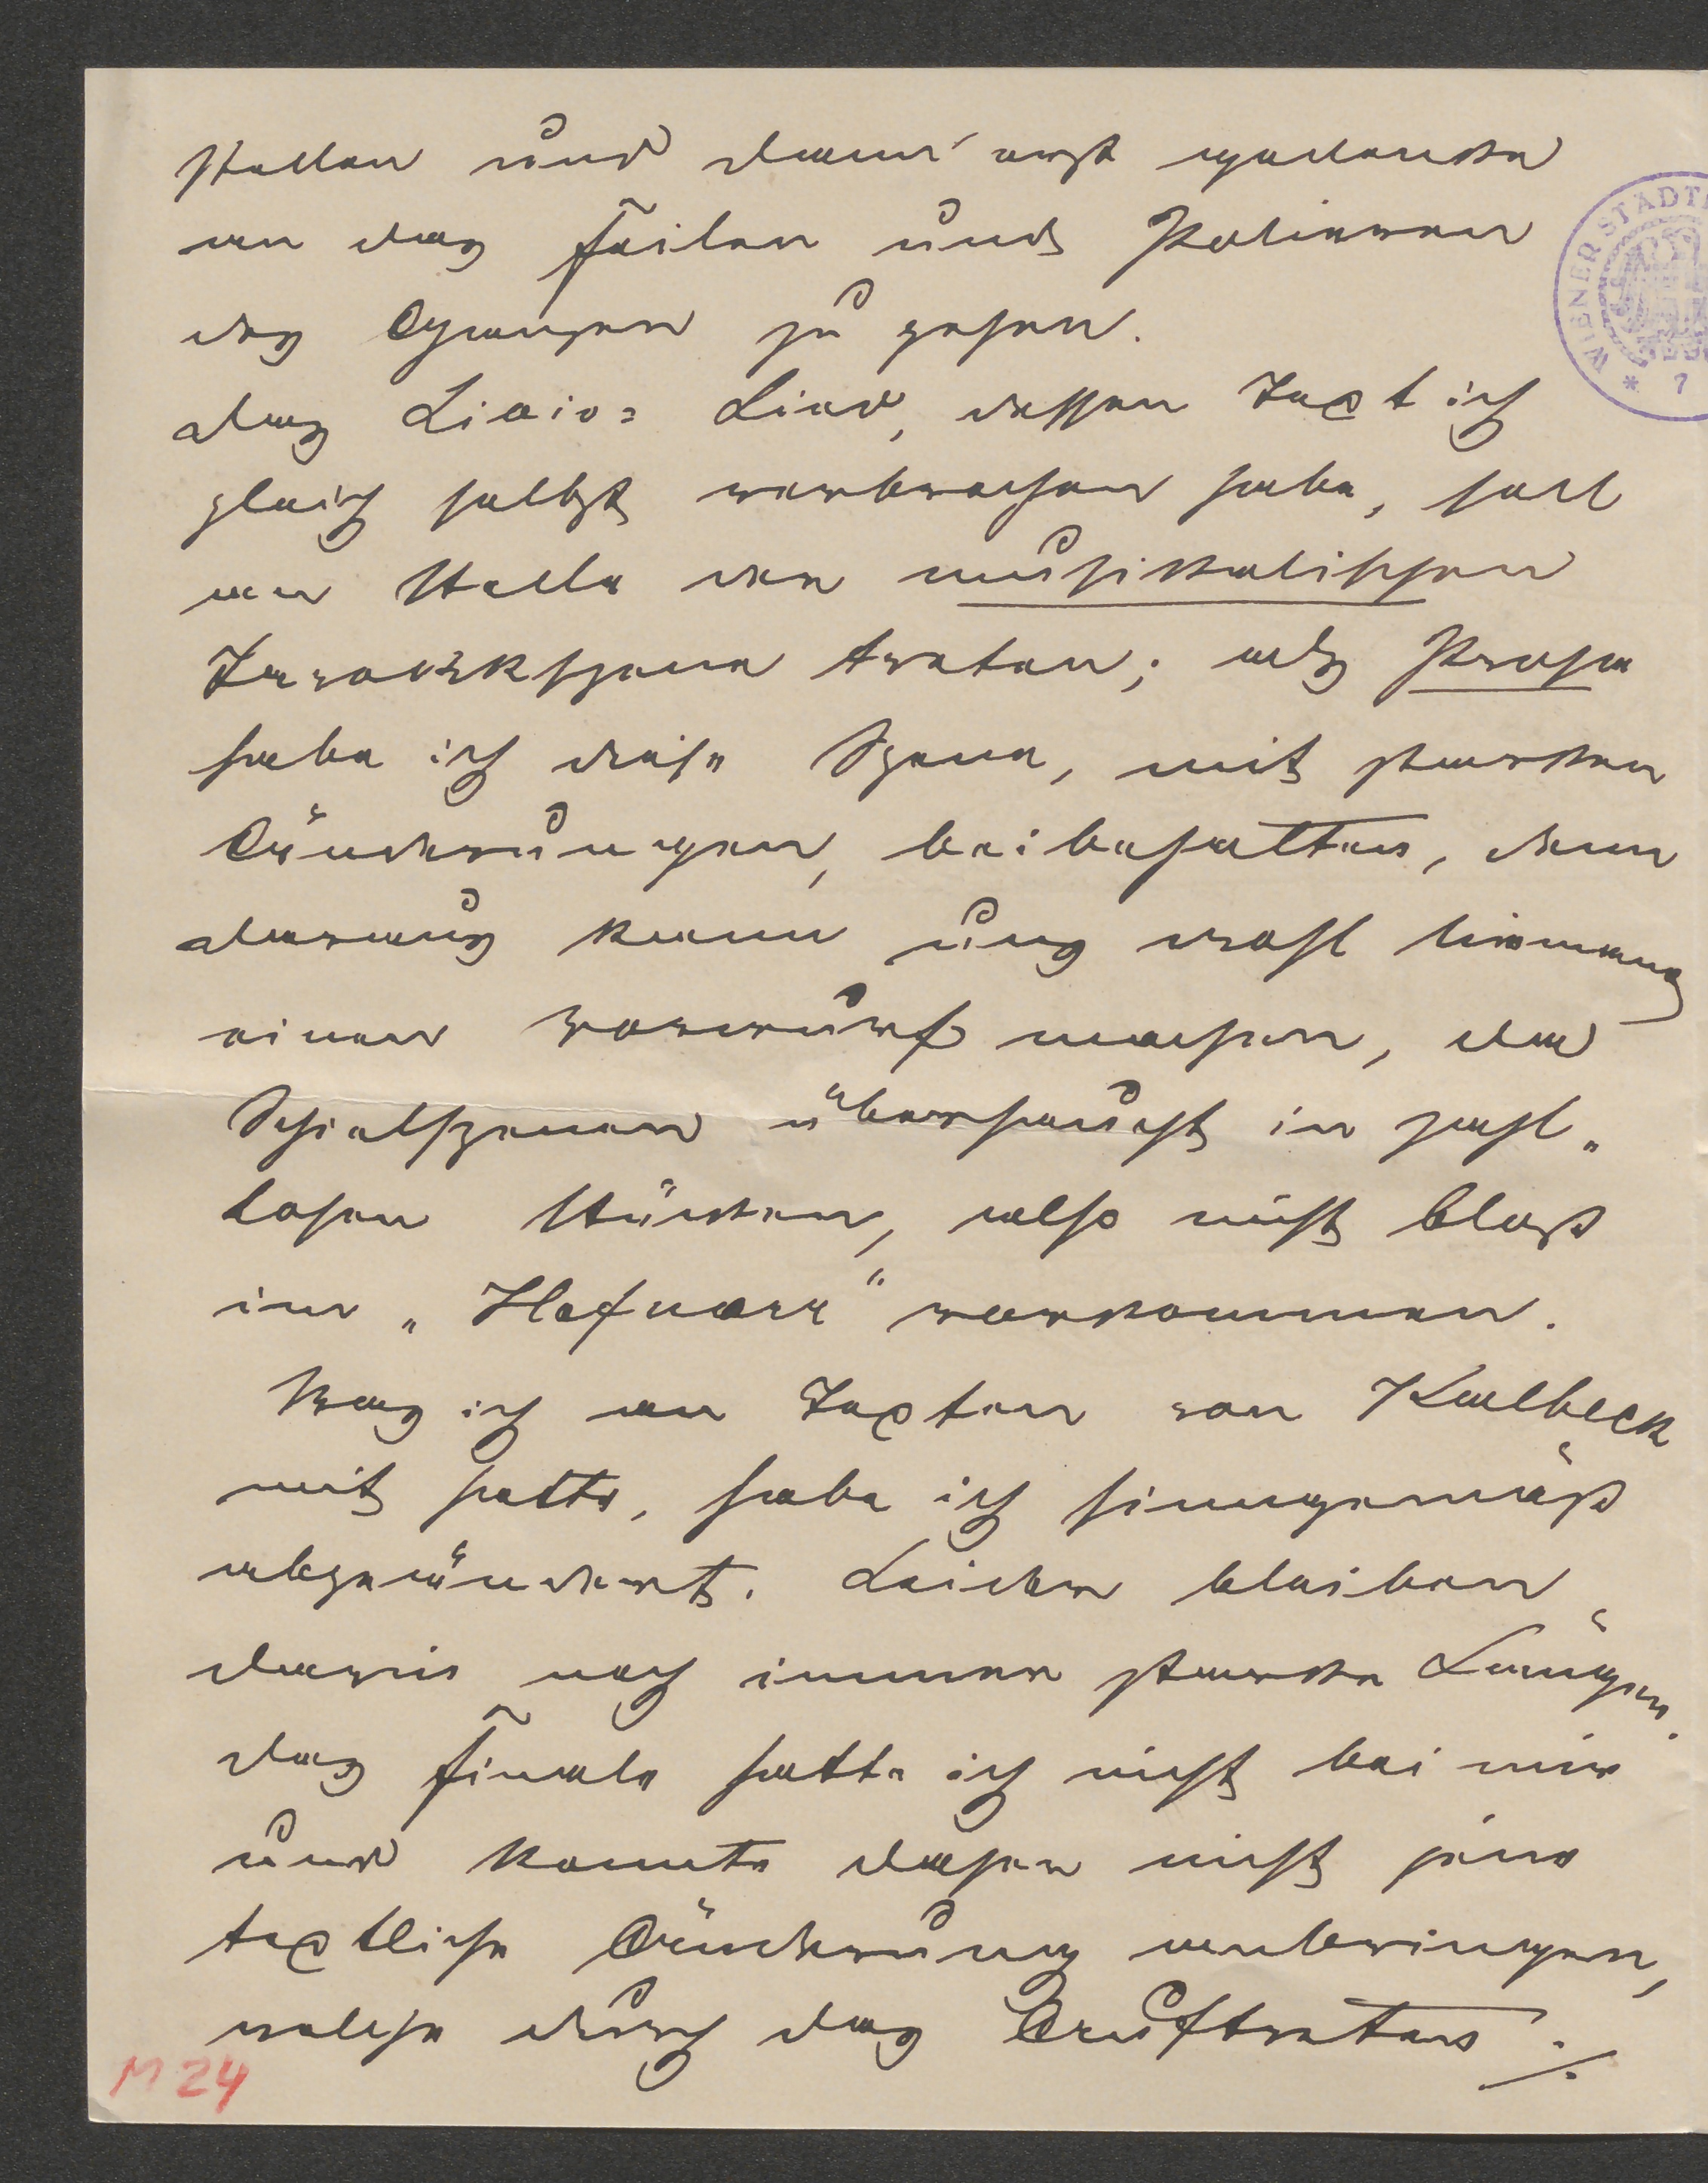 stellen und dann erst gedenke
an das Feilen und Polieren
des Ganzen zu gehen.
das Livio= Lied, dessen Text ich
gleich selbst verbrochen habe, soll
an Stelle der musikalischen
Tarockszene treten; als Prosa
habe ich diese Szene, mit starken
Änderungen, beibehalten, denn
daraus kann uns wohl niemand
einen Vorwurf machen, da
Spielszenen überhaupt in zahl„
losen Stücken, also nicht bloß
im „Hofnarr" vorkommen.
Was ich an Texten von Kalbeck
mit hatte, habe ich sinngemäß
abgeändert. Leider bleiben
darin noch immer starke Längen.
das Finale hatte ich nicht bei mir
und konnte daher nicht jene
textliche Änderung anbringen,
welche durch das Auftreten ./.
M 24
WIENER STADT
* 7